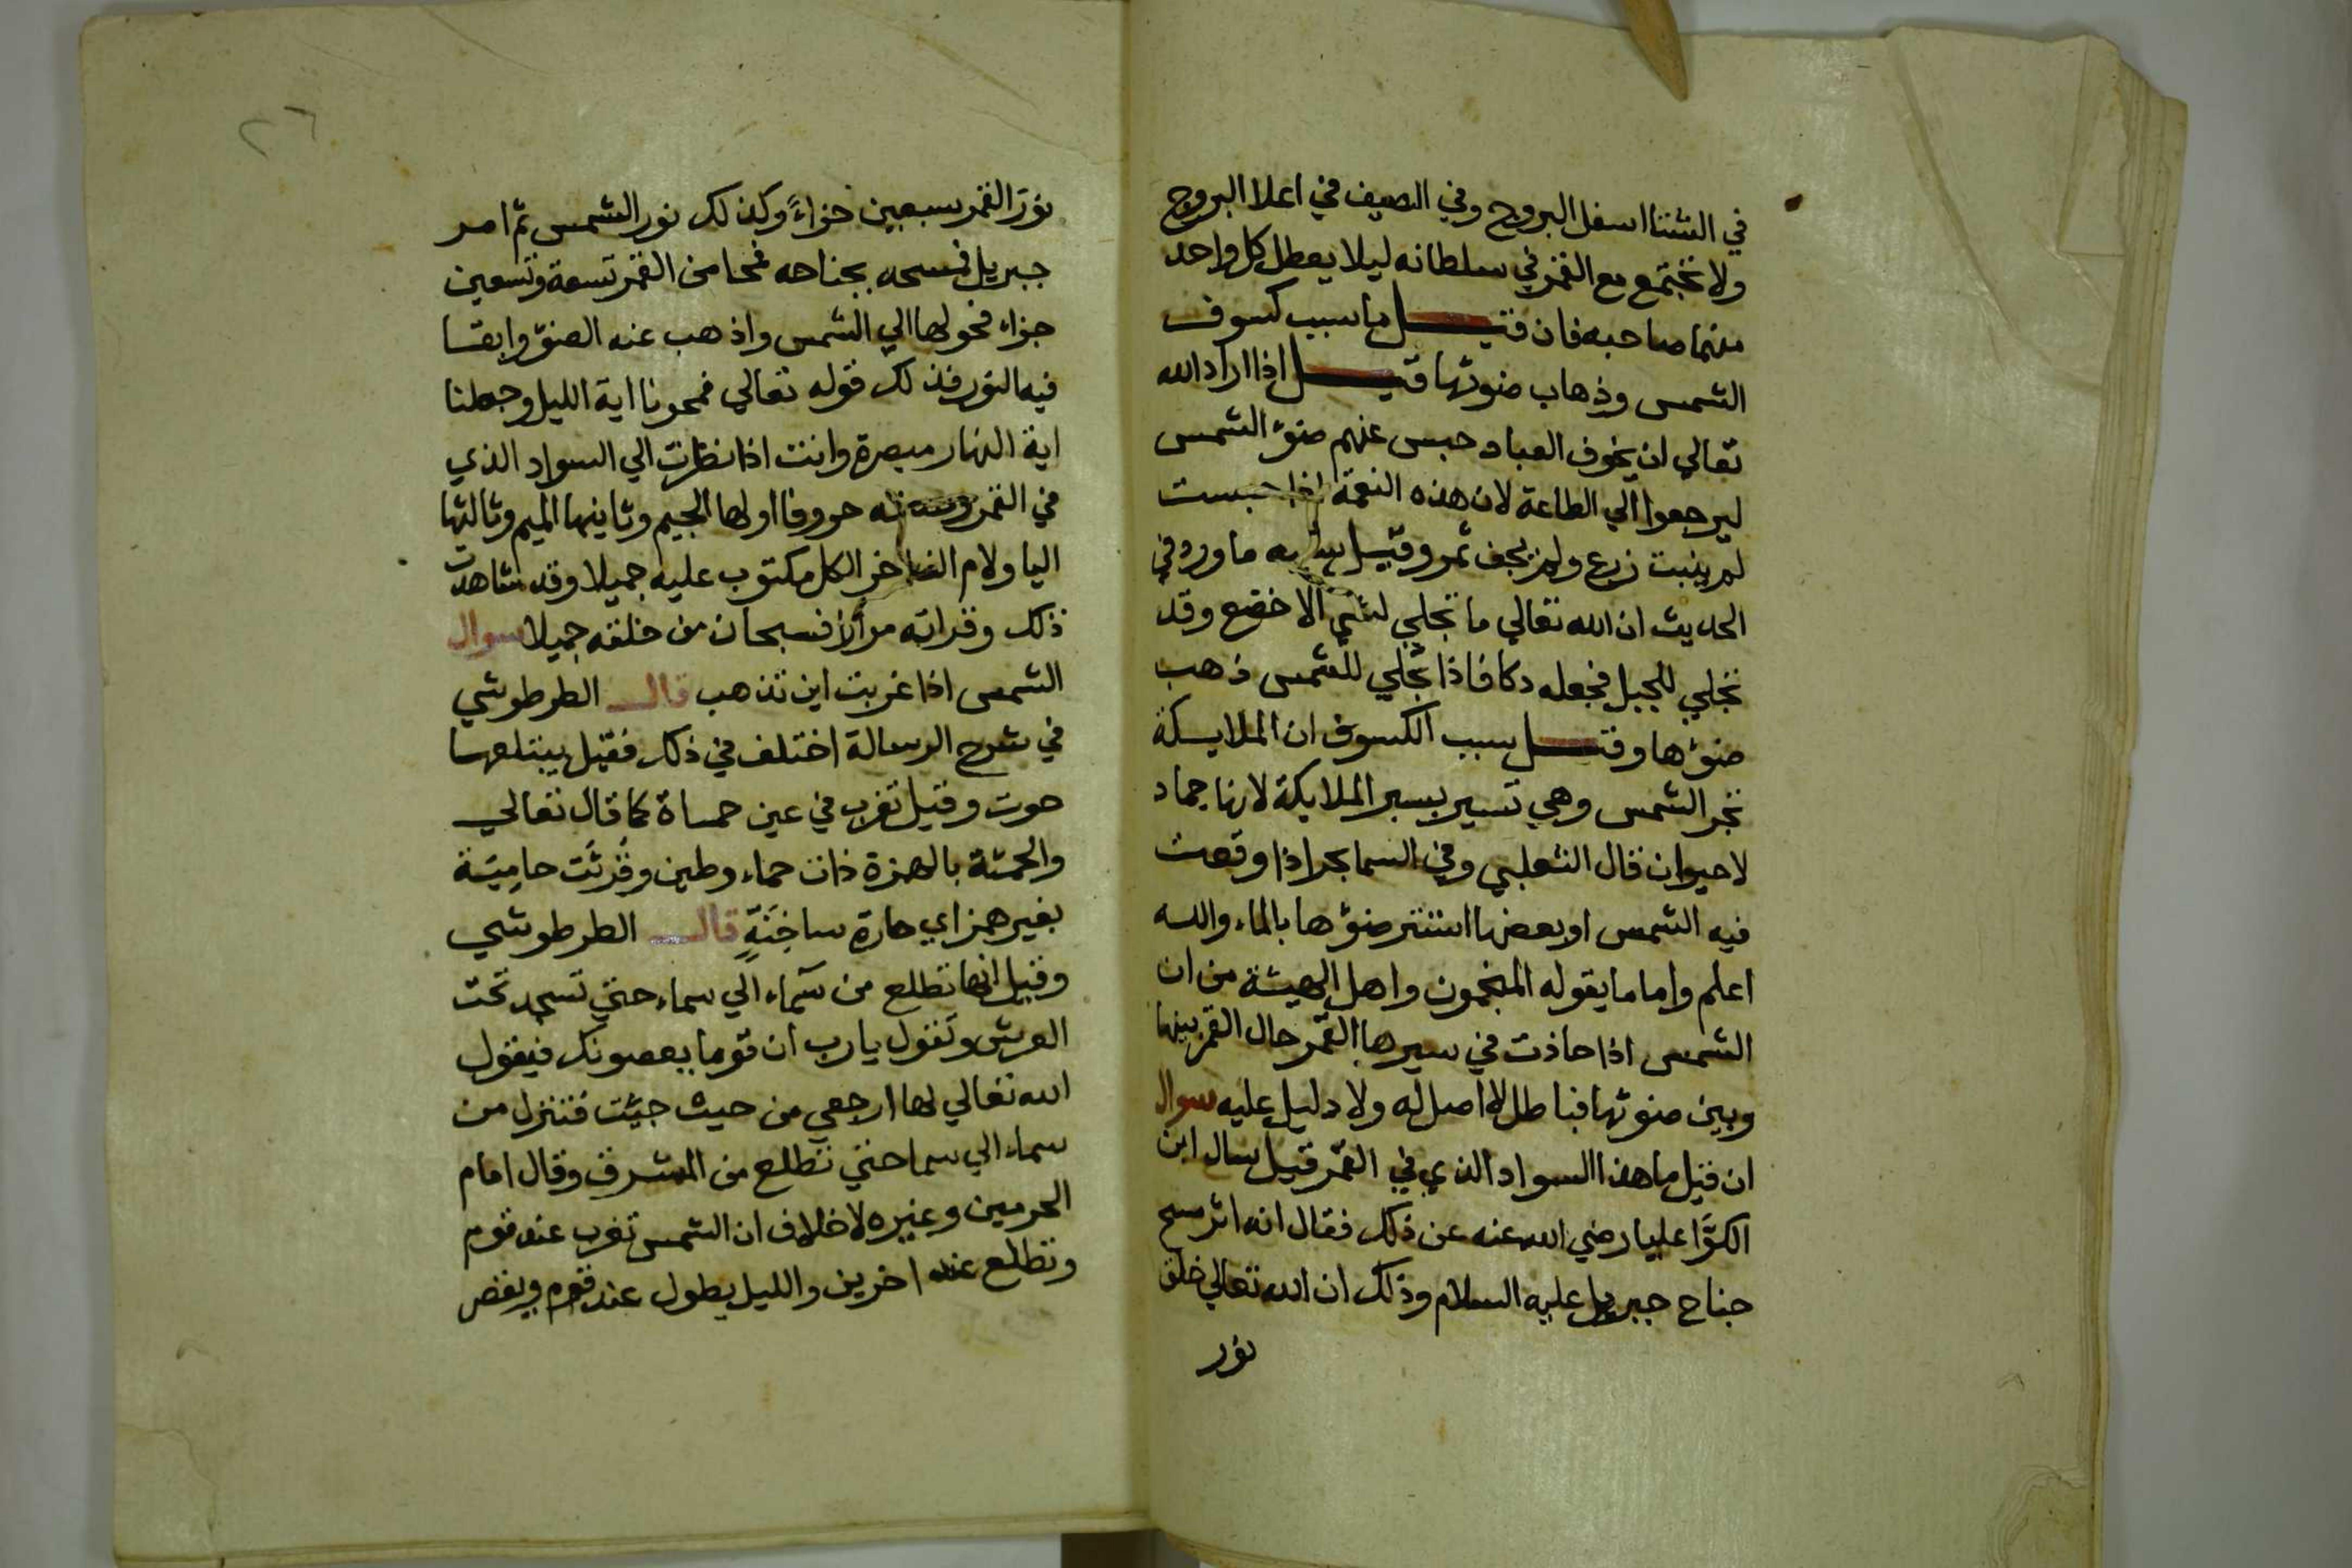 في الشتا اسفل البروج وفي الصيف في اعلا البروج
ولا تجتمع مع القمر في سلطانه ليلا يعطل كل واحد
منهما صاحبه فان قيل ما سبب كسوف
الشمس وذهاب ضوئها قيل اذا اراد الله
تعالي ان يخوف العباد حبس عنهم ضوء الشمس
ليرجعوا الي الطاعة لان هذه النعمة اذا حبست
لم ينبت زرع ولم يجف ثمر وقيل سببه ما ورد في
الحديث ان الله تعالي ما تجلي لشي الا خضع وقد
تجلي للجبل فجعله دكا فاذا تجلي للشمس ذهب
ضوءها وقيل سبب الكسوف ان الملايكة
تجر الشمس وهي تسير بسير الملايكة لانها جماد
لا حيوان قال الثعلبي وفي السما بحر اذا وقعت
فيه الشمس او بعضها استتر ضوءها بالماء والله
اعلم واما ما يقوله المنجمون واهل الهيئة من ان
الشمس اذا حاذت في سيرها القمر حال القمر بينها
وبين ضوئها فباطل لا اصل له ولا دليل عليه سوال
ان قيل ما هذا السواد الذي في القمر قيل سال ابن
الكوَّا عليا رضي الله عنه عن ذلك فقال انه اثر مسح
جناح جبريل عليه السلام وذلك ان الله تعالي خلق
نور
٢٦
نور القمر سبعين جزاءً وكذلك نور الشمس ثم امر
جبريل فمسحه بجناحه فمحا من القمر تسعة وتسعين
جزاء فحولها الي الشمس واذهب عنه الضوء وابقا
فيه النور فذلك قوله تعالي فمحونا اية الليل وجعلنا
اية النهار مبصرة وانت اذا نظرت الي السواد الذي
في القمر وجدته حروفا اولها الجيم وثانيها الميم وثالثها
اليا ولام الف اخر الكل مكتوب عليه جميلا وقد شاهدت
ذلك وقراته مرارا فسبحان من خلقه جميلا سوال
الشمس اذا غربت اين تذهب قال الطرطوشي
في شرح الرسالة اختلف في ذلك فقيل يبتلعها
حوت وقيل تغرب في عين حماة كما قال تعالي
والحمئة بالهمزة ذات حماء وطين وقُرئَت حامِيَة
بغير همز اي حارة ساخِنَةٍ قال الطرطوشي
وقيل انها تطلع من سماء الي سماء حتي تسجد تحت
العرش وتقول يا رب ان قوما يعصونك فيقول
الله تعالي لها ارجعي من حيث جيت فتنزل من
سماء الي سما حتي تطلع من المشرق وقال امام
الحرمين وغيره لا خلاف ان الشمس تغرب عند قوم
وتطلع عند اخرين والليل يطول عند قوم ويقصر